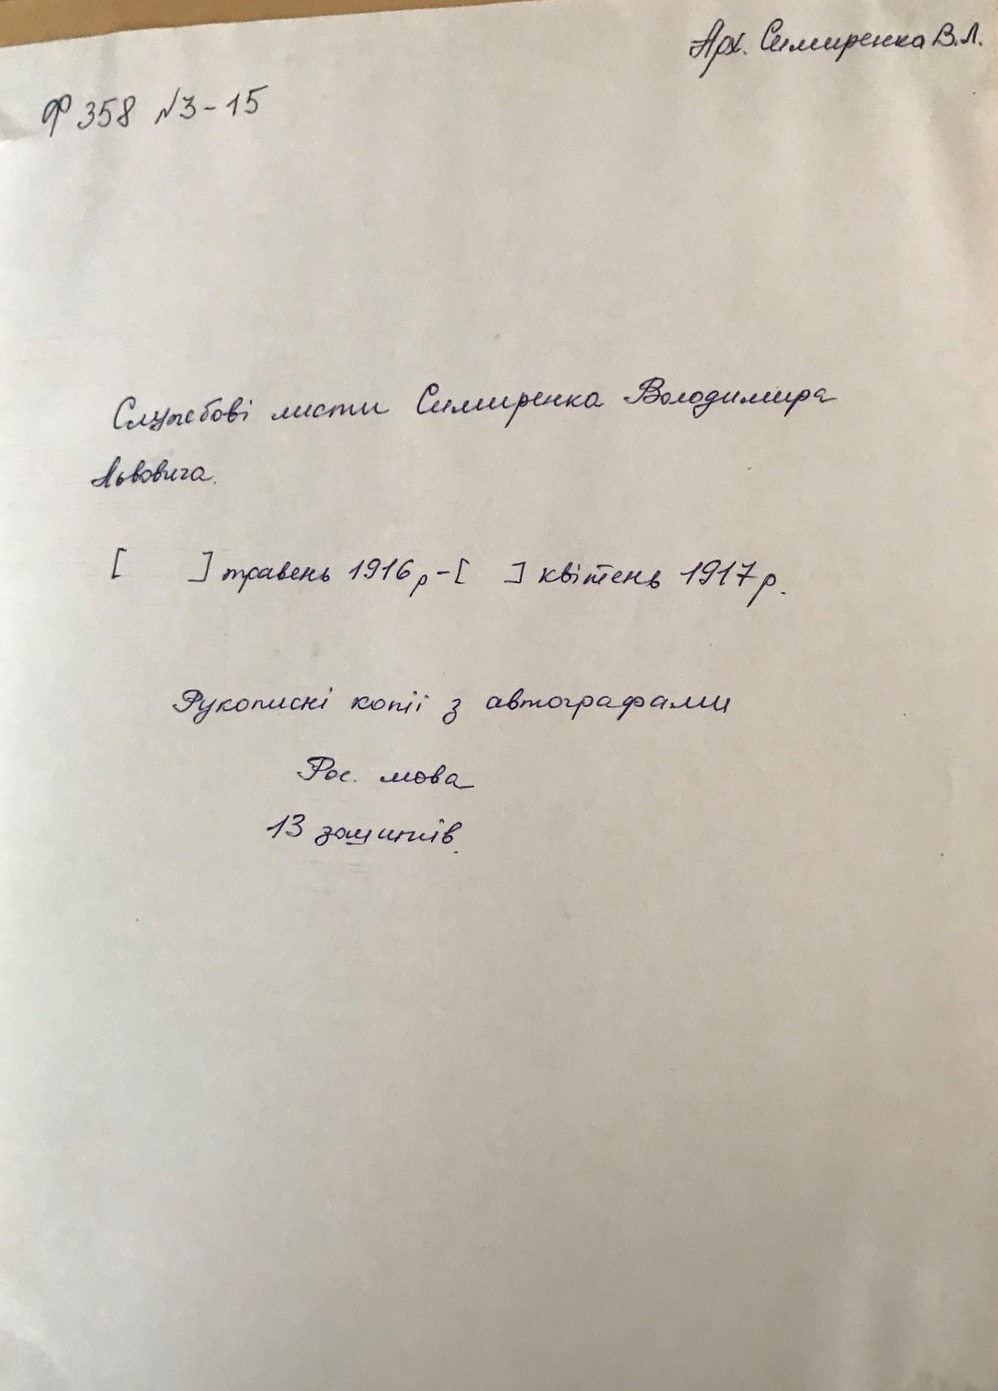 Арх. Симиренка В.Л.
Ф 358 №3-15
Службові листи Симиренка Володимира
Львовича.
[ ] травень 1916р-[ ] квітень 1917р.
Рукописні копії з автографами
Рос. мова
13 зошитів.